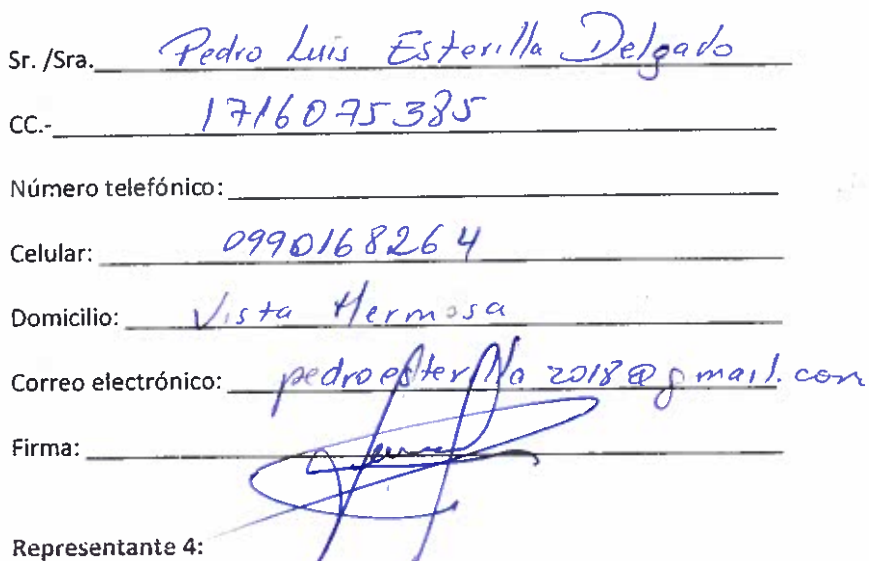 Sr. /Sra. Pedro Luis Esterilla Delgado
CC.- 1716075385
Número telefónico:
Celular: 0990168264
Domicilio: Vista Hermosa
Correo electrónico: pedroesterilla2018@gmail.com
Firma:
Representante 4: